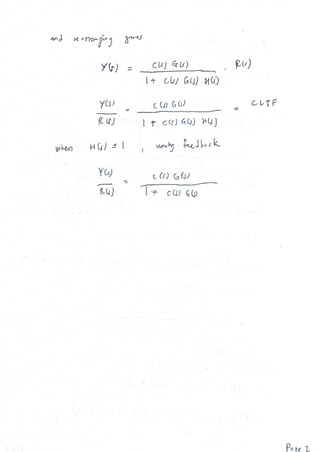 and rearranging gives
Y(s) = C(s) G(s) / 1 + C(s) G(s) H(s) . R(s)
Y(s) / R(s) = C(s) G(s) / 1 + C(s) G(s) H(s) = CLTF
when H(s) = 1 , unity feedback
Y(s) / R(s) = C(s) G(s) / 1 + C(s) G(s)
Page 2